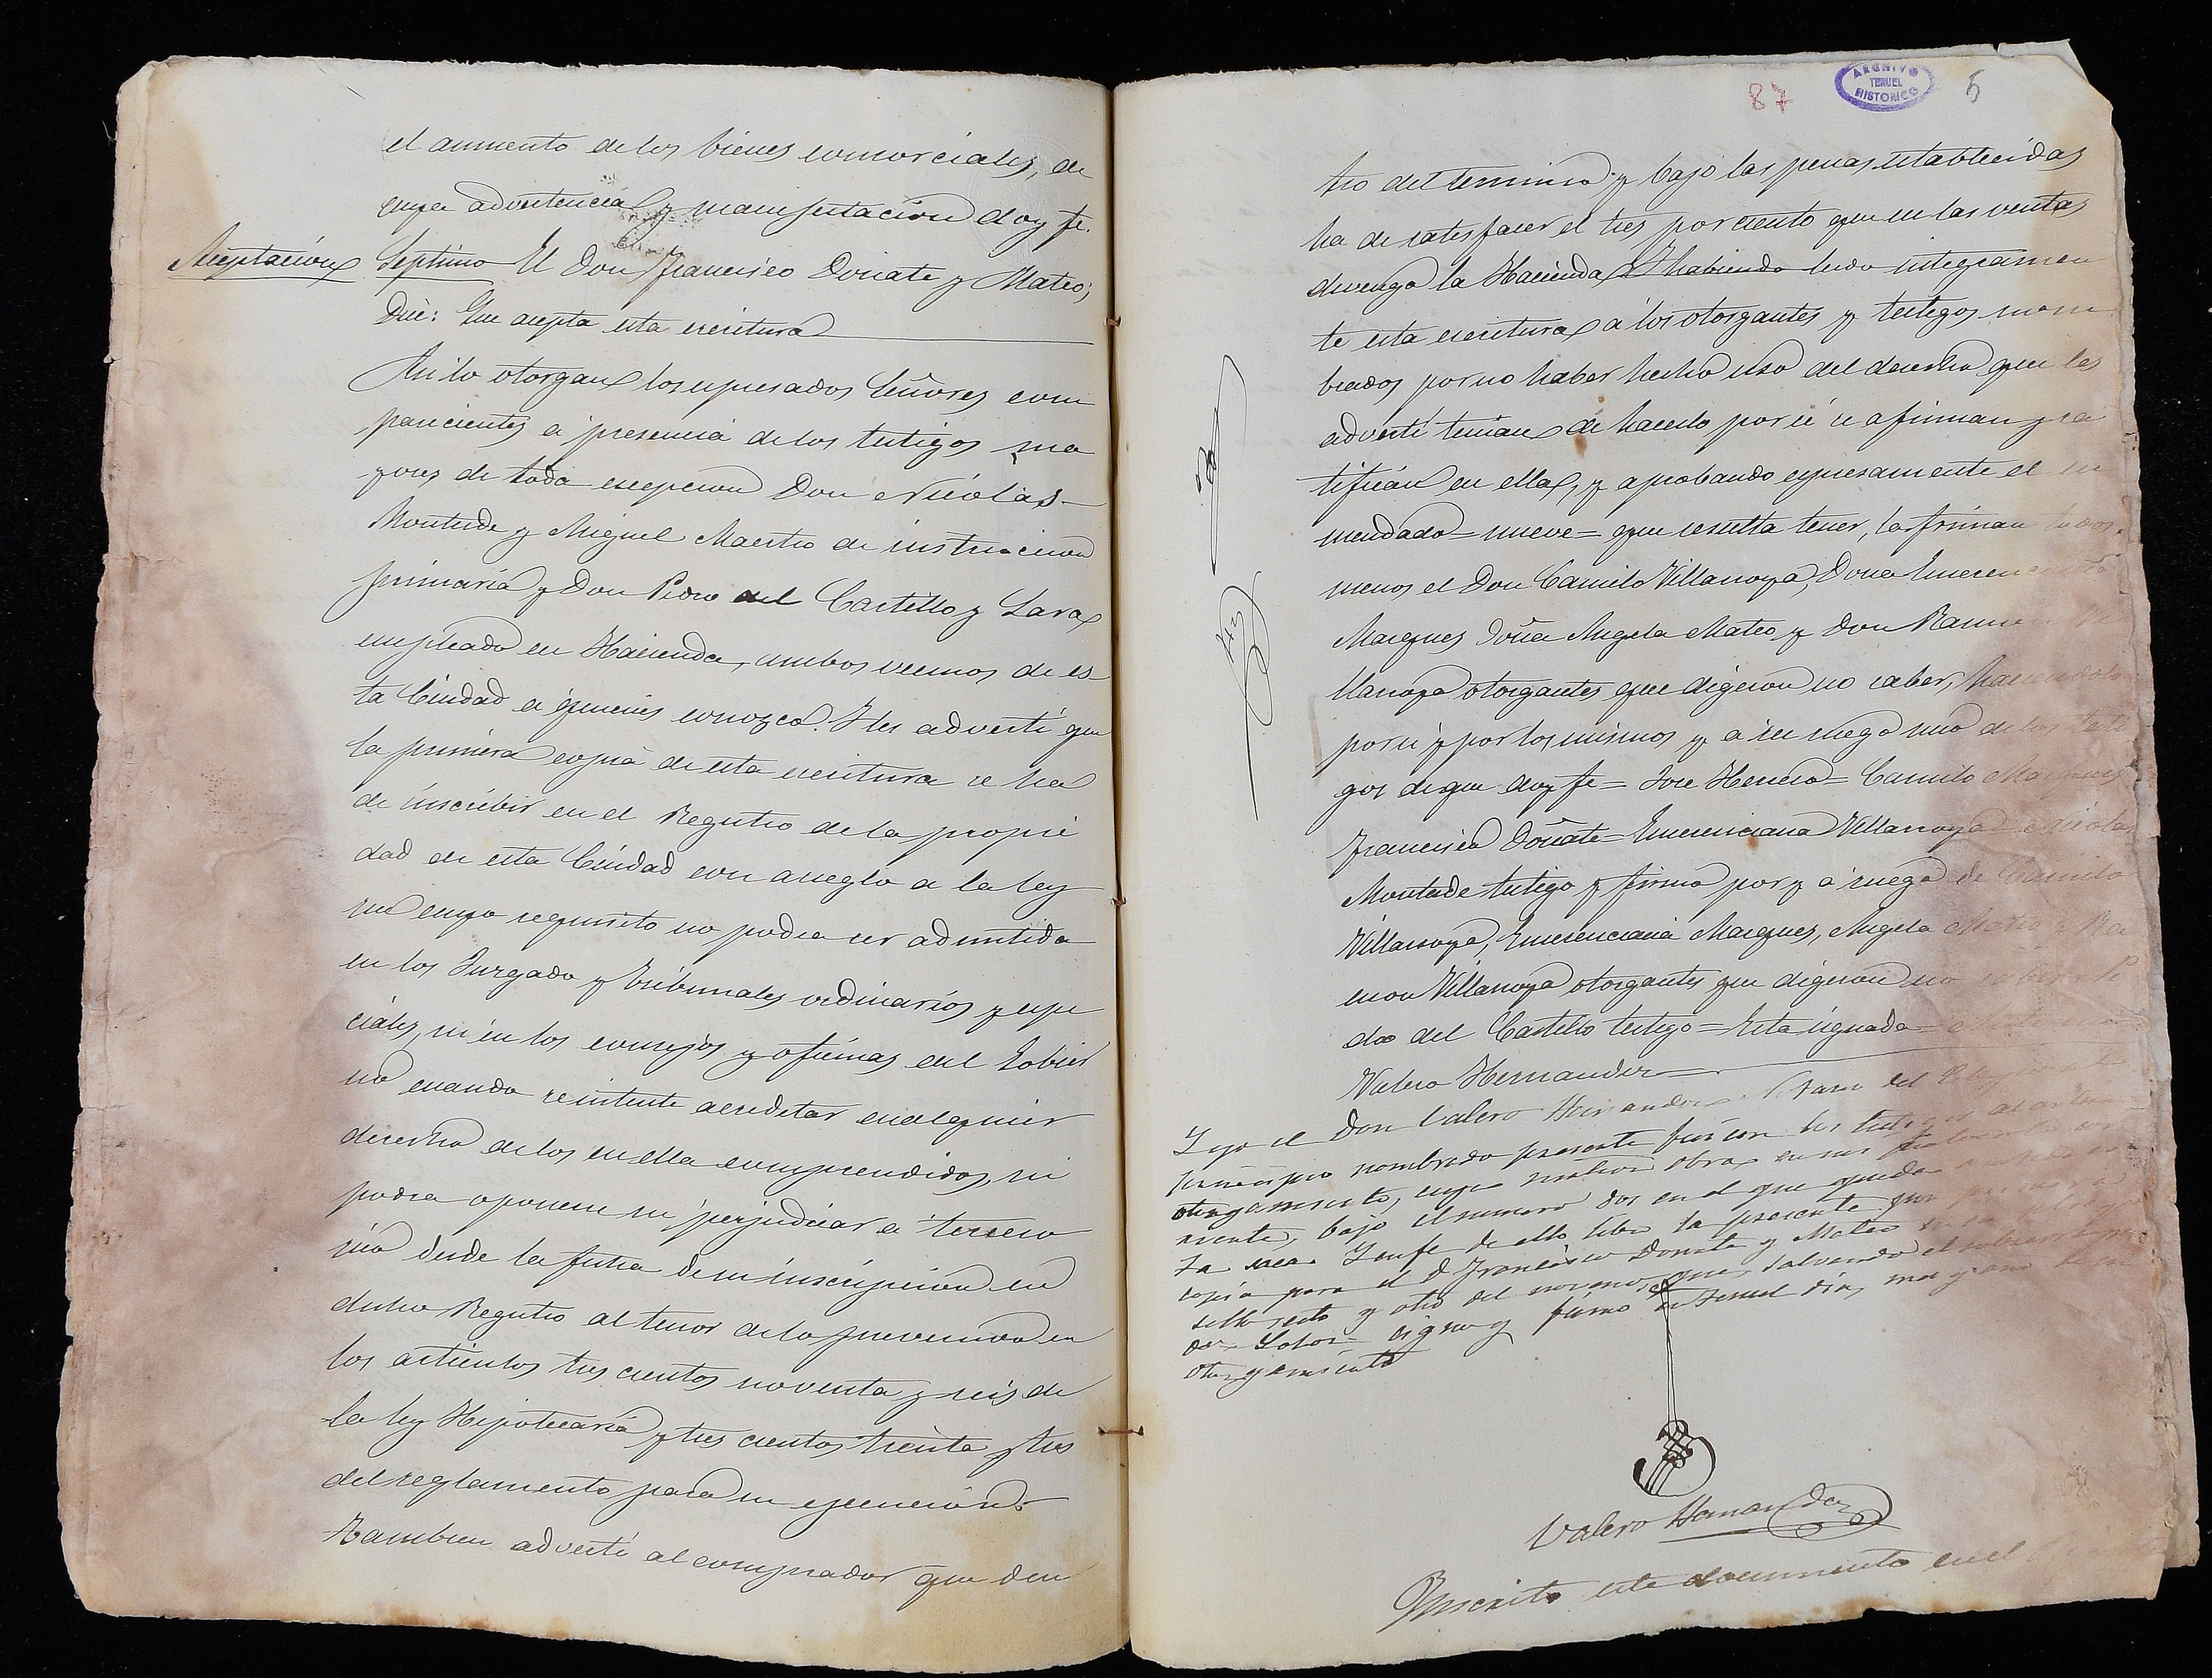 el aumento de los bienes consorciales, de
cuya advertencia y manifestacion doy fe.
Aceptacion Septimo El Don Francisco Doñate y Mateo;
Dice: Que acepta esta escritura
Asi lo otorgan los espresados Señores com
parecientes a presencia de los testigos ma
yores de toda escepcion Don Nicolas
Monterde y Miguel Maestro de instruccion
primaria y Don Pedro del Castillo y Lara
empleado en Hacienda, ambos vecinos de es-
ta Ciudad a quienes conozco. Y les advertí que
la primera copia de esta escritura se ha
de inscribir en el Registro de la propie
dad de esta Ciudad con arreglo a la ley
sin cuyo requisito no podra ser admitida
en los Juzgado y tribunales ordinarios y espe
ciales, ni en los consejos y oficinas del Gobier
no cuando se intente acreditar cualquier
derecho de los en ella comprendidos, ni
podra oponerse ni perjudicar a tercero
sino desde la fecha de su inscripcion en
dicho Registro al tenor de lo prevenido en
los articulos tres cientos noventa y seis de
la ley Hipotecaria y tres cientos treinta y tres
del reglamento para su ejecucion.
Tambien advertí al comprador que den
87
ARCHIVO
TERUEL
HISTORICO
5
tro del termino y bajo las penas establecidas
ha de satisfacer el tres por ciento que en las ventas
devenga la Hacienda Y habiendo leido integramen
te esta escritura a los otorgantes y testigos nom
brados por no haber hecho uso del derecho que les
advertí tenian de hacerlo por sí se afirman y ra
tifican en ella, y aprobando espresamente el en
mendado = nueve = que resulta tener, la firman todos
menos el Don Camilo Villarroya, Doña Emerenciana
Marques Doña Angela Mateo y Don Ramon Vi
llarroya otorgantes que digeron no saber, haciendolo
por sí y por los mismos y a su ruego uno de los testi
gos de que doy fe = Jose Herrero = Camilo Marques
Francisco Doñate = Emerenciana Villarroya = Nicolas
Monterde testigo y firmo por y a ruego de Camilo
Villarroya, Emerenciana Marques, Angela Mateo y Ra
mon Villarroya otorgantes que digeron no saber = Pe
dro del Castillo testigo = Esta signado =
Valero Hernandez
Y yo el Don Valero Hernandez Notario del Colegio
principio nombrado presente fui con los testigos a su
otorgamiento, cuya matriz obra en mi protocolo cor
riente, bajo el numero dos en el que queda anotada es
ta saca. Y en fe de ello libro la presente primera
copia para el D. Francisco Doñate y Mateo en un pliego
sello sesto y otro del noveno, que salvando el sobre
do = Y otor = signo y firmo en Teruel dia, mes y año de su
otorgamiento
Valero Hernandez
Inscrito este documento en el